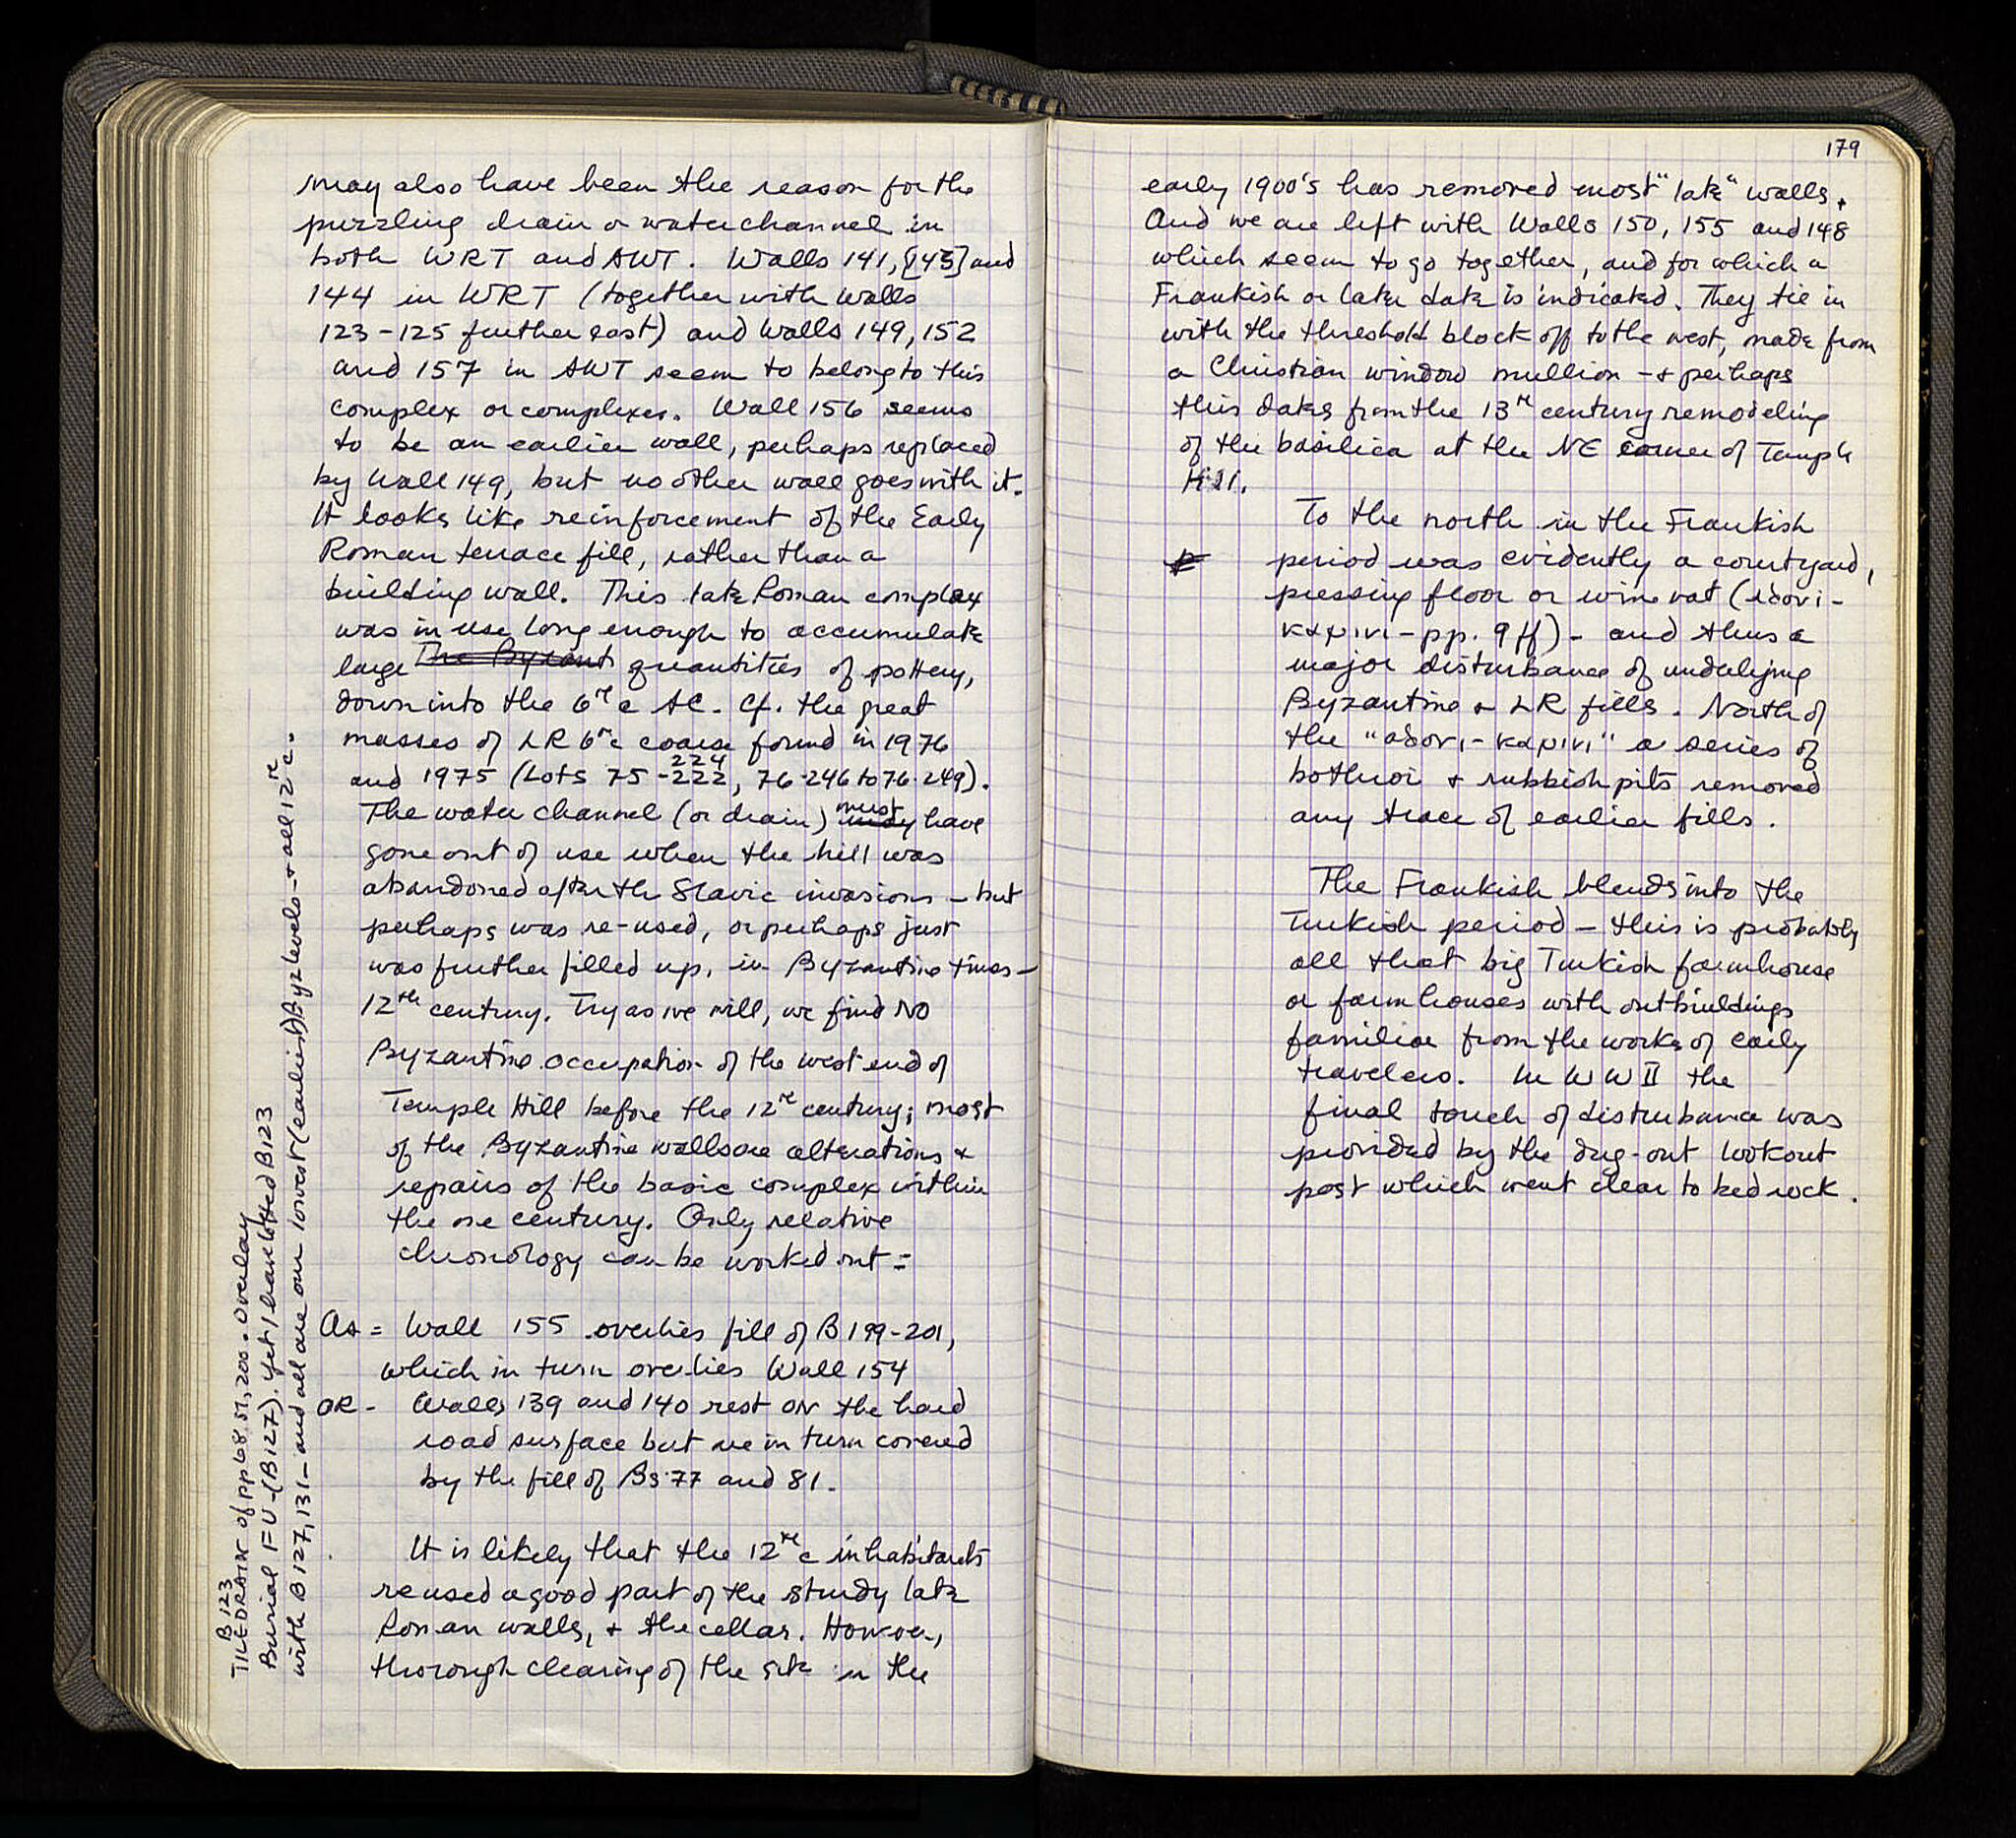 may also have been the reason for the
puzzling drain or water channel in
both WRT and AWT. Walls 141, [143] and
144 in WRT (together with walls
123-125 further east) and Walls 149, 152
and 157 in AWT seem to belong to this
complex or complexes. Wall 156 seems
to be an earlier wall, perhaps replaced
by Wall 149, but no other wall goes with it.
It looks like reinforcement of the Early
Roman terrace fill, rather than a
building wall. This late Roman complex
was in use long enough to accumulate
large The Byzant quantities of pottery,
down into the 6th c AC. Cf. the great
masses of LR 6th c coarse found in 1976
and 1975 (Lots 75-222, 224, 76-246 to 76-249).
The water channel (or drain) may must have
gone out of use when the hill was
abandoned after the Slavic invasions - but
perhaps was re-used, or perhaps just
was further filled up, in Byzantine times -
12th century. Try as we will, we find NO
Byzantine occupation of the west end of
Temple Hill before the 12th century; most
of the Byzantine walls are alterations &
repairs of the basic complex within
the one century. Only relative
chronology can be worked out =
As = Wall 155 overlies fill of B 199-201,
which in turn overlies Wall 154
OR - Walls 139 and 140 rest ON the hard
road surface but are in turn covered
by the fill of Bs 77 and 81.
It is likely that the 12th c inhabitants
reused a good part of the sturdy late
Roman walls, & the cellar. However,
thorough clearing of the site in the
B 123
TILE DRAIN of pp 68, 51, 200. Overlay
Burial F=U-(B127). Yet I have lotted B123
with B127, 131 - and all are our lowest (earliest) Byz levels - & all 12th c.
179
early 1900's has removed most "late" walls.
And we are left with Walls 150, 155 and 148
which seem to go together, and for which a
Frankish or later date is indicated. They tie in
with the threshold block off to the west, made from
a Christian window mullion - & perhaps
this dates from the 13th century remodeling
of the basilica at the NE corner of Temple
Hill.
To the north in the Frankish
period was evidently a courtyard,
pressing floor or wine vat (
- pp. 9 ff) - and thus a
major disturbance of underlying
Byzantine & LR fills. North of
the a series of
bothroi & rubbish pits removed
any trace of earlier fills.
The Frankish blends into the
Turkish period - this is probably
all that big Turkish farmhouse
or farmhouses with outbuildings
familiar from the works of early
travelers. In WW II the
final touch of disturbance was
provided by the dug-out lookout
post which went clear to bedrock.